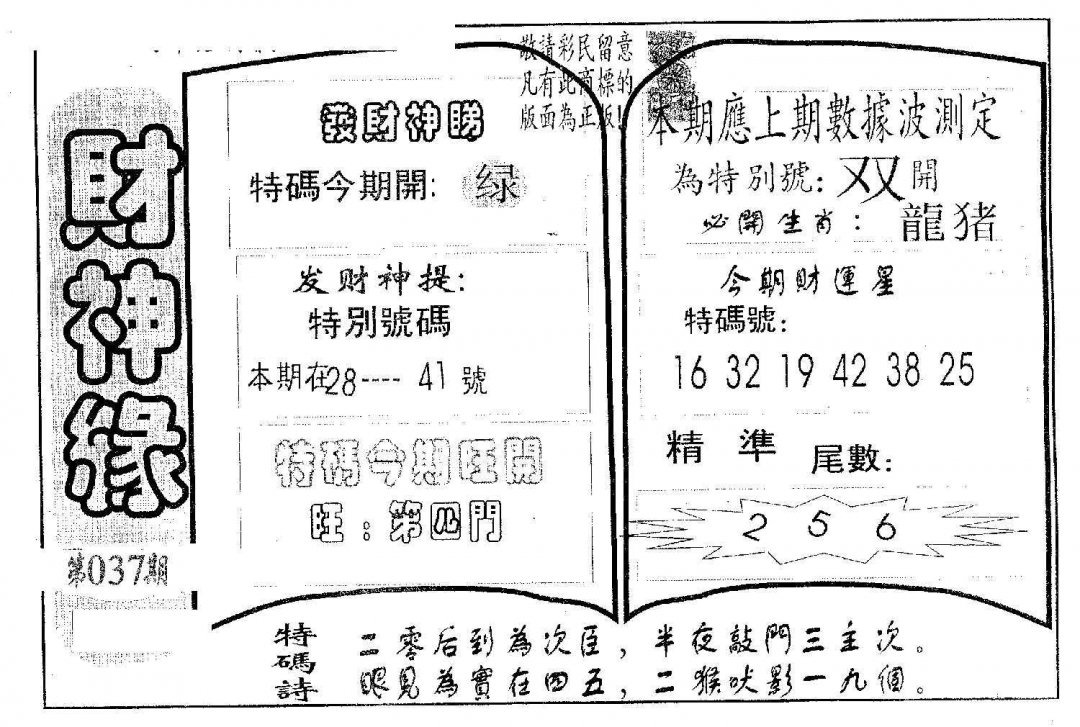 財神緣
第037期
敬請彩民留意
凡有此商標的
版面為正版!
發財神睇
特碼今期開: 绿
发财神提:
特別號碼
本期在28---- 41 號
特碼今期旺開
旺:第四門
本期應上期數據波測定
為特別號: 双 開
必開生肖: 龍猪
今期財運星
特碼號:
16 32 19 42 38 25
精 準 尾數:
2 5 6
特碼詩
二零后到為次臣,半夜敲門三主次。
眼見為實在四五,二猴吠影一九個。